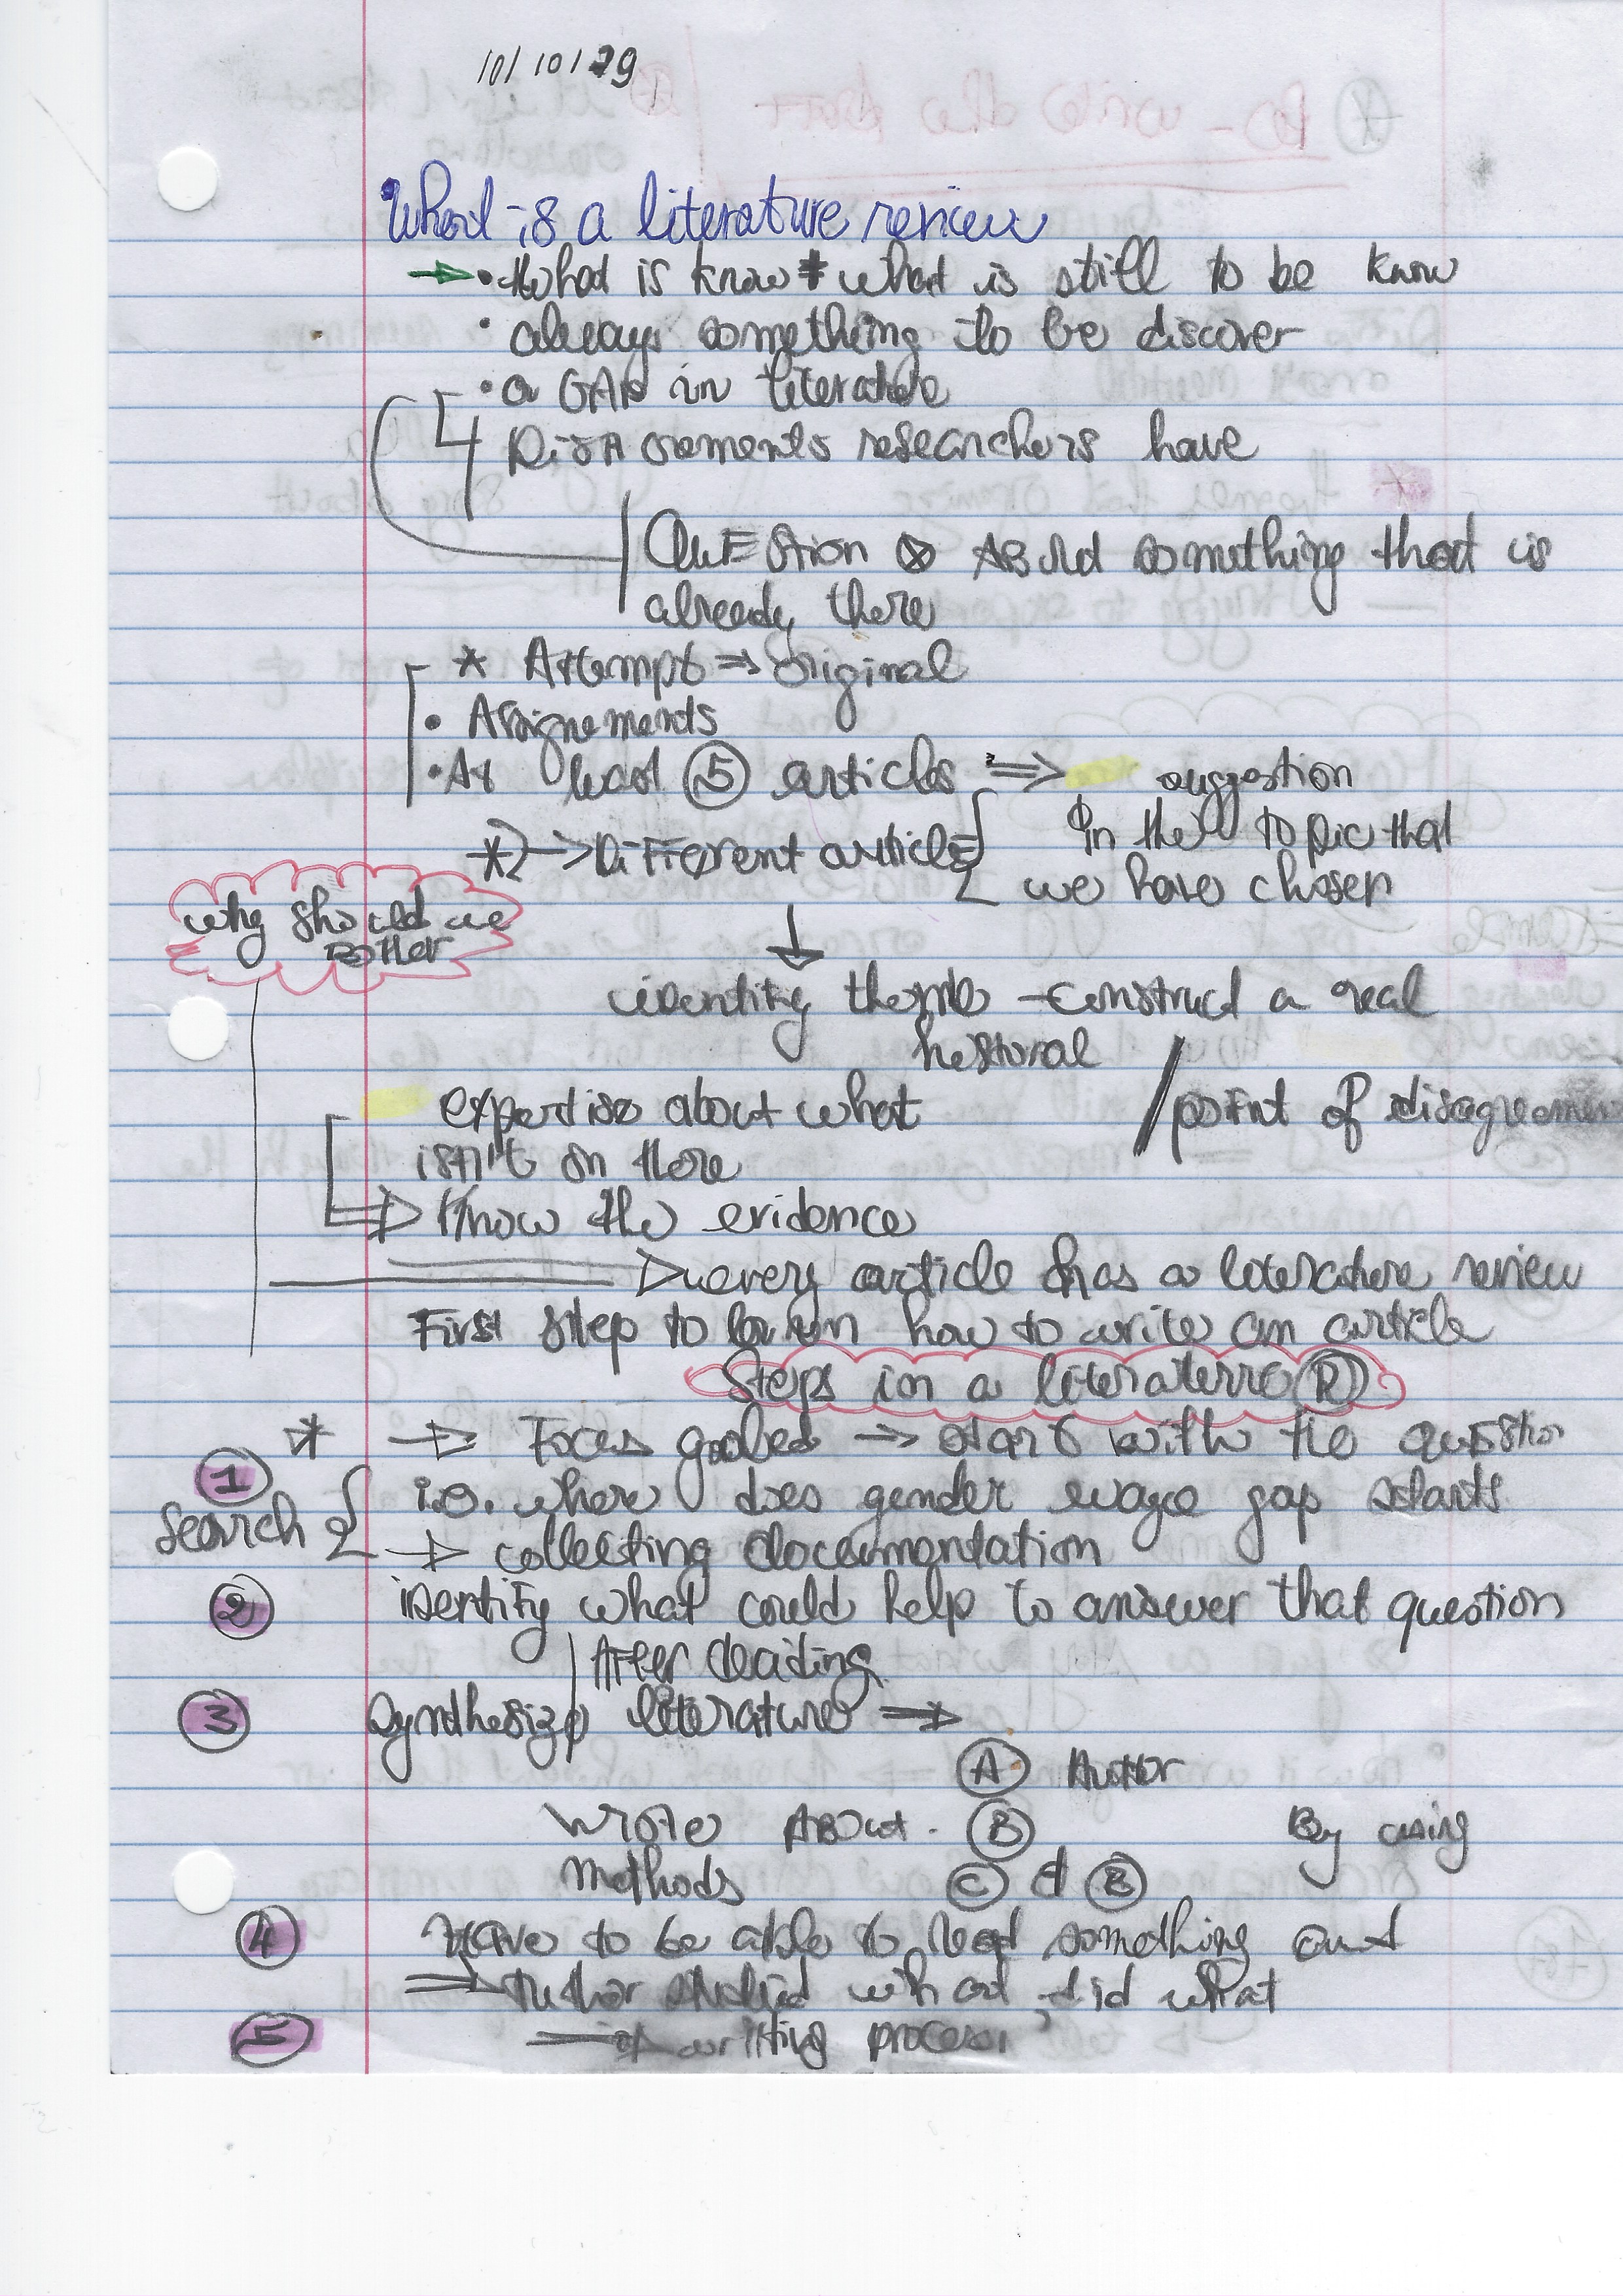 10/10/29
What is a literature review
→ • What is know ≠ what is still to be know
• always something to be discover
• a GAP in literature
Disagrements researchers have
QuEstion ⊗ About something that is
already there
* Attempt ⇒ original
• Assignements
• At least 5 articles ⇒ suggestion
* → Different article in the topic that
we have chosen
why should we
Bother
identify - construct a real
point of disagreement
expertise about what
isn't on there
⇒ Know the evidence
every article has a literature review
First step to learn how to write an article
Steps in a literaterre R
* ⇒ Focus → start with the question
1 i.e. where does gender wage gap starts
Search → collecting documentation
2 identify what could help to answer that question
After deciding
3 Synthesize literature ⇒
A Author
Wrote About. B By using
Methods C d B
4 Have to be able to read something and
⇒ Author studied what, did what
5 writing process